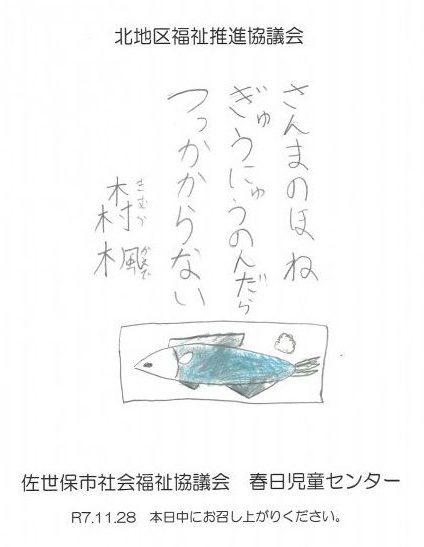 北地区福祉推進協議会
さんまのほね
ぎゅうにゅうのんだら
つっかからない
きむら かえで
木村 楓
佐世保市社会福祉協議会　春日児童センター
R7.11.28　本日中にお召し上がりください。